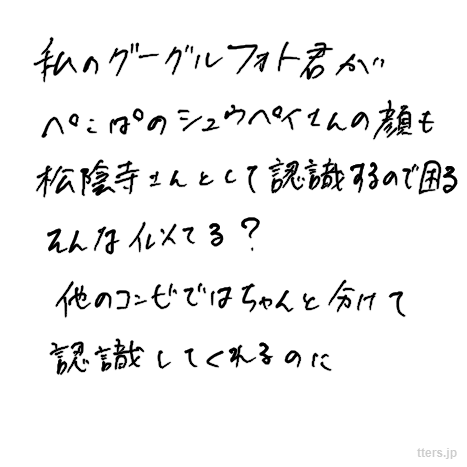 私のグーグルフォト君が
ぺこぱのシュウペイさんの顔も
松陰寺さんとして認識するので困る
そんな似てる?
他のコンビではちゃんと分けて
認識してくれるのに
tters.jp